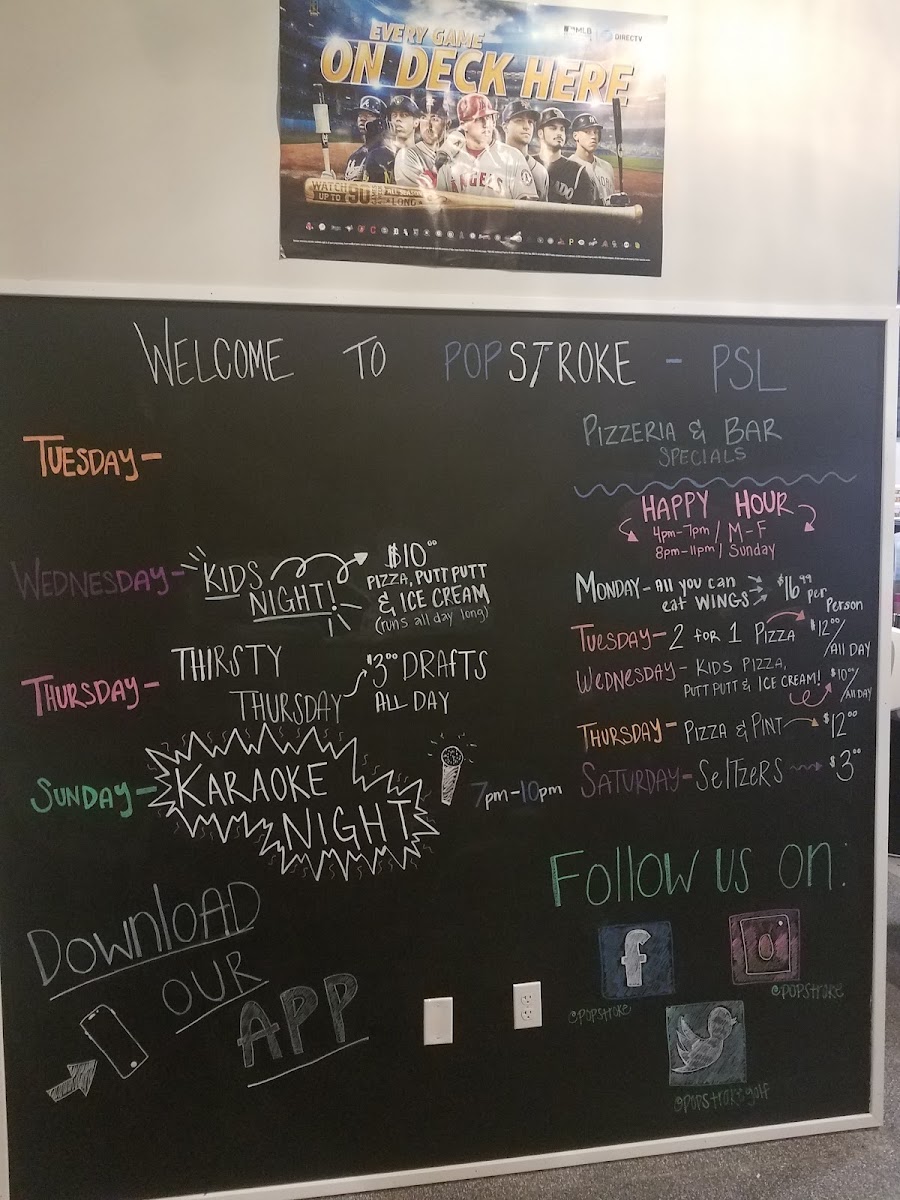 EVERY GAME
ON DECK HERE
MLB
DIRECTV
ANGELS
WATCH UP TO 90
ALL SEASON LONG
WELCOME TO POPSTROKE - PSL
TUESDAY-
WEDNESDAY- KIDS NIGHT!
$10.00
PIZZA, PUTT PUTT
& ICE CREAM
(runs all day long)
THURSDAY- THIRSTY
THURSDAY
$3.00 DRAFTS
ALL DAY
SUNDAY- KARAOKE
NIGHT
7pm-10pm
DOWNLOAD
OUR
APP
PIZZERIA & BAR
SPECIALS
HAPPY HOUR
4pm-7pm / M-F
8pm-11pm / Sunday
MONDAY- All you can
eat WINGS
$16.99 per
Person
TUESDAY- 2 FOR 1 PIZZA $12.00/
All DAY
WEDNESDAY- KIDS PIZZA,
PUTT PUTT & ICE CREAM! $10.00/
All DAY
THURSDAY- PIZZA & PINT $12.00
SATURDAY- SElTzERS $3.00
Follow us on:
f
@popstroke
@popstroke
@popstrokegolf